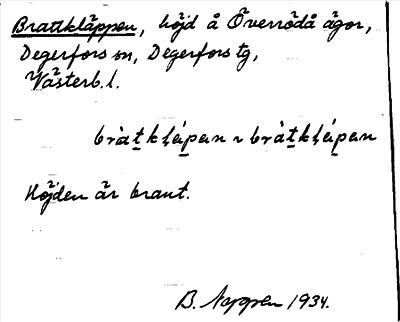 Brattkläppen, höjd å Överrödå ägor,
Degerfors sn, Degerfors tg,
Västerb. l.
bràt̲kḷáp̲an ~ bràt̲kḷáp̲an
Höjden är brant.
B. 1934.